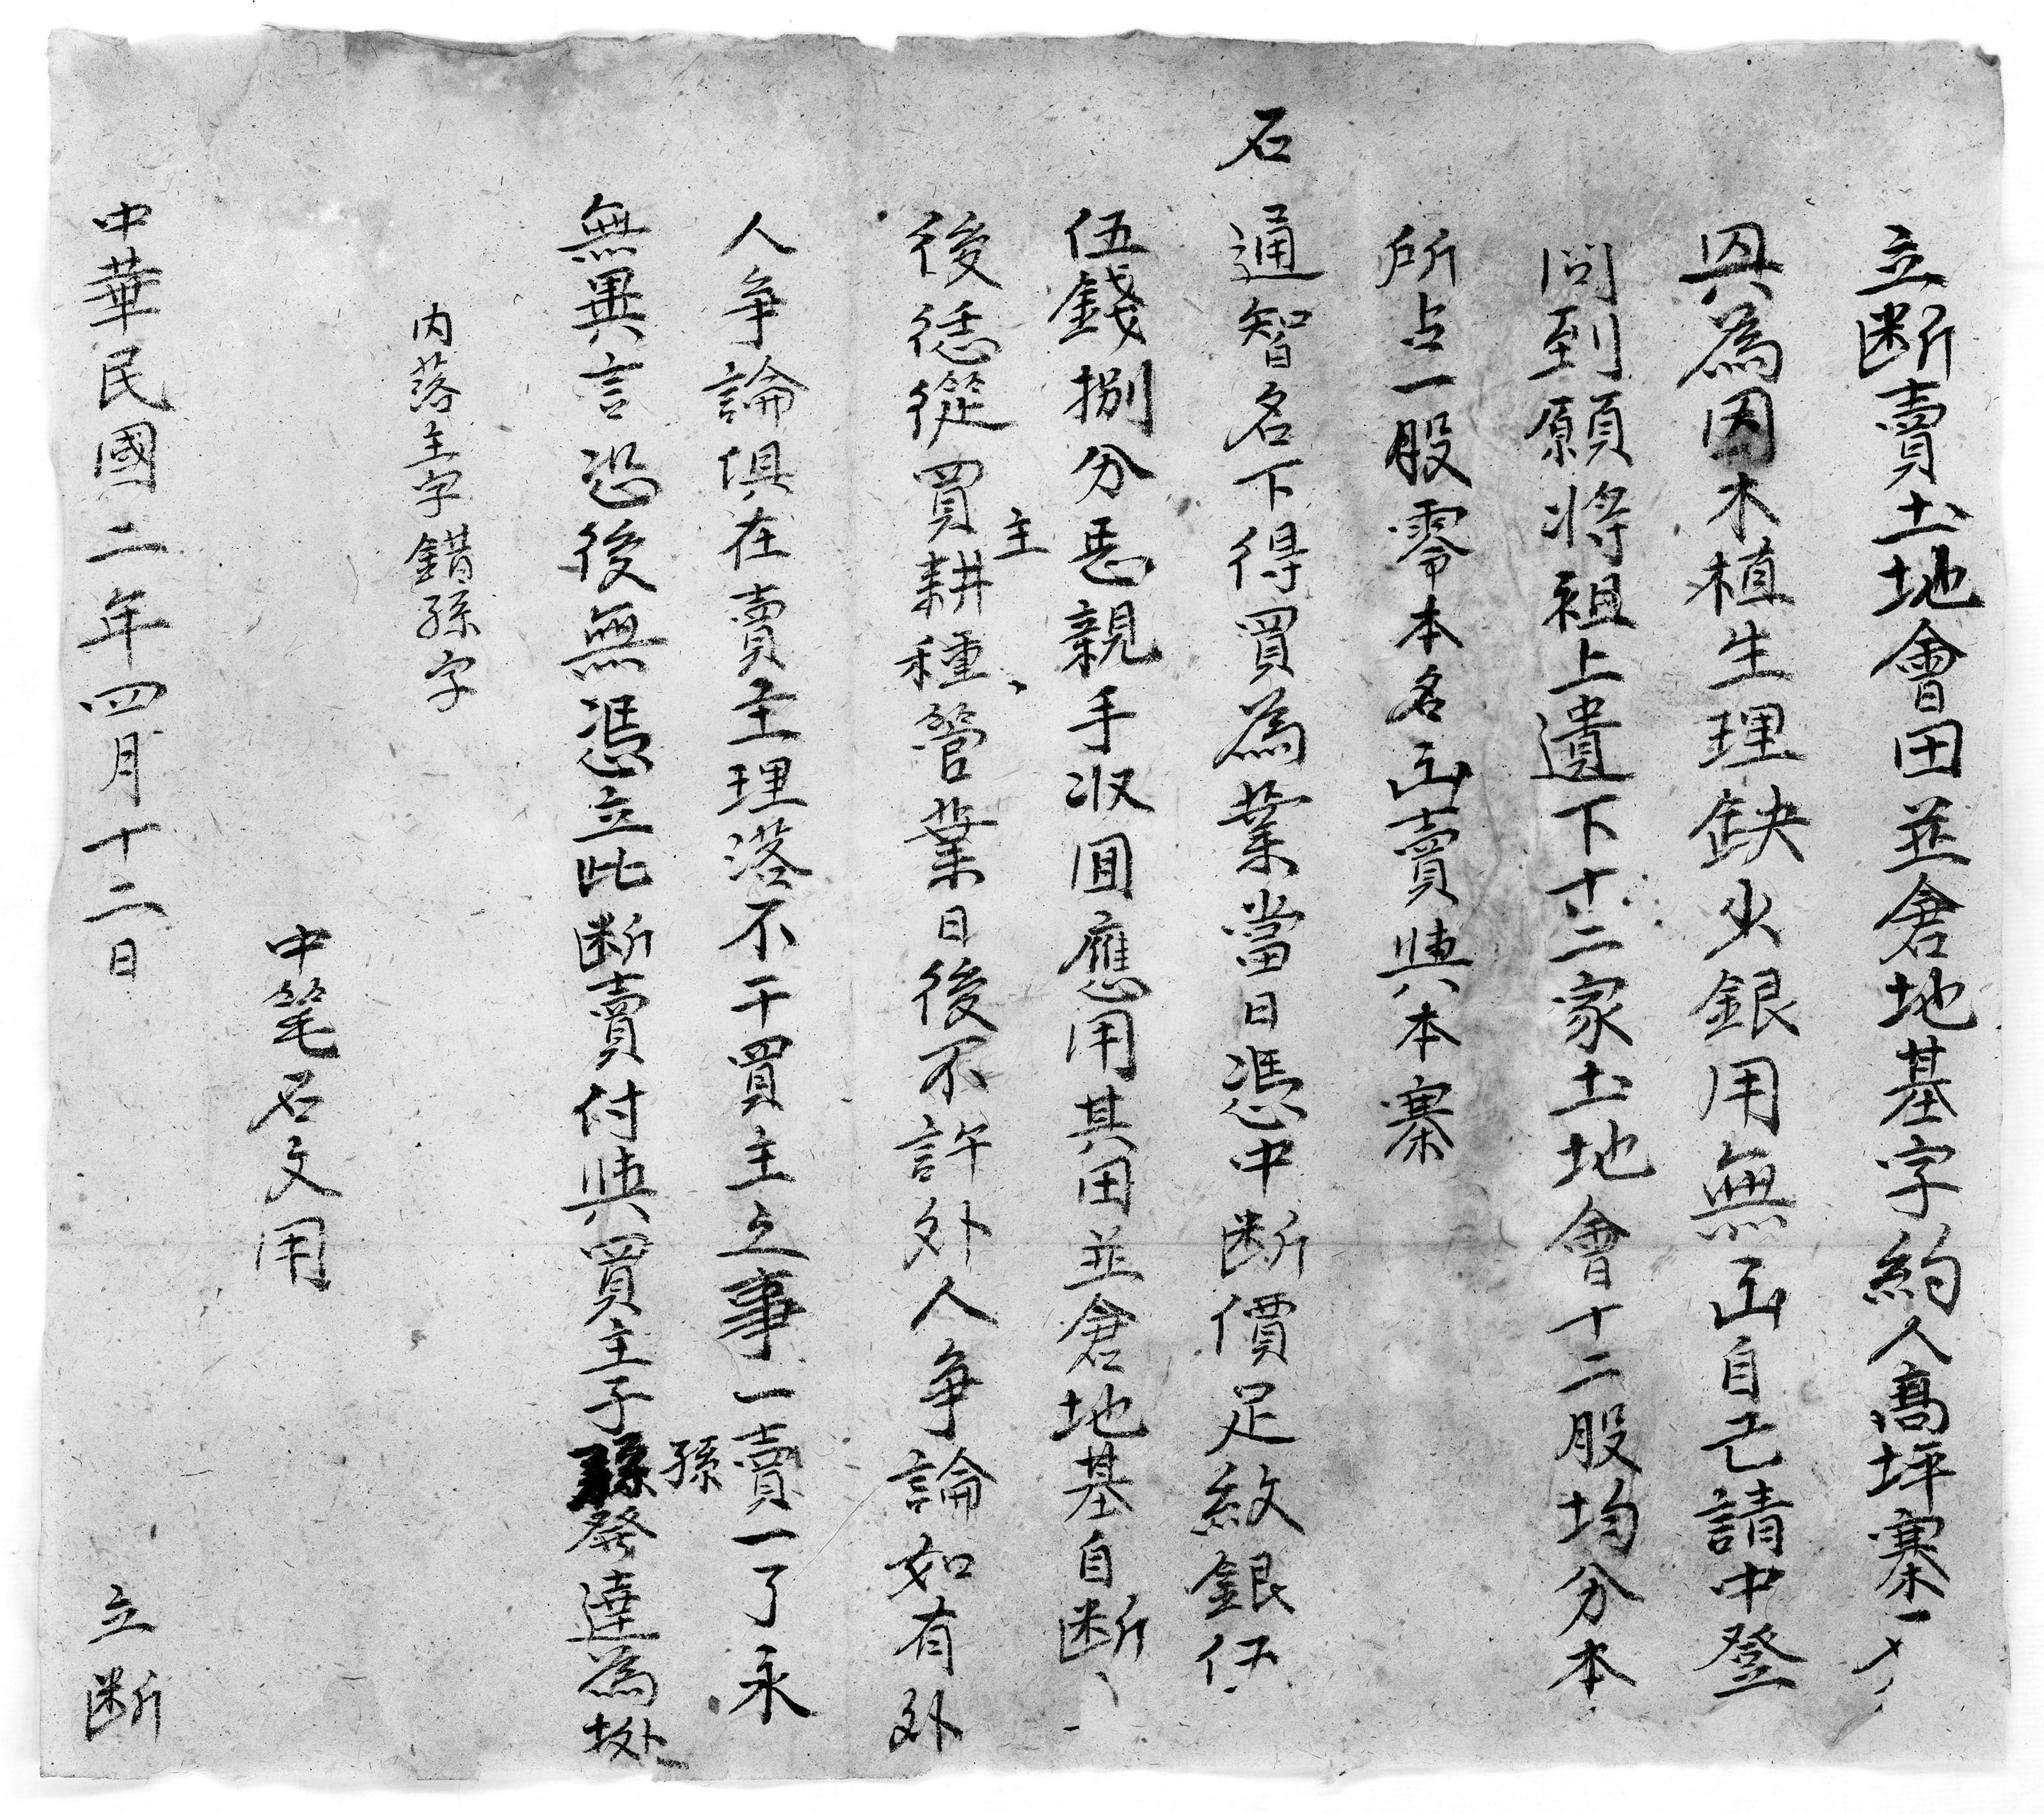 立断賣土地會田並倉地基字約人高坪寨
㒷為因木植生理缺少銀用無出自己請中登
問到願將祖上遺下十二家土地會十二股均分本
所占一股零本名出賣與本寨
石通智名下得買為業當日憑中断價足紋銀伍
伍錢捌分悉親手收回應用其田並倉地基自断
後恁從買主耕種管業日後不許外人爭論如有外
人爭論俱在賣主理落不干買主之事一賣一了永
無異言恐後無憑立此断賣付與買主子孫發達為據
内落主字錯孫字
中筆石文用
中華民國二年四月十二日 立断